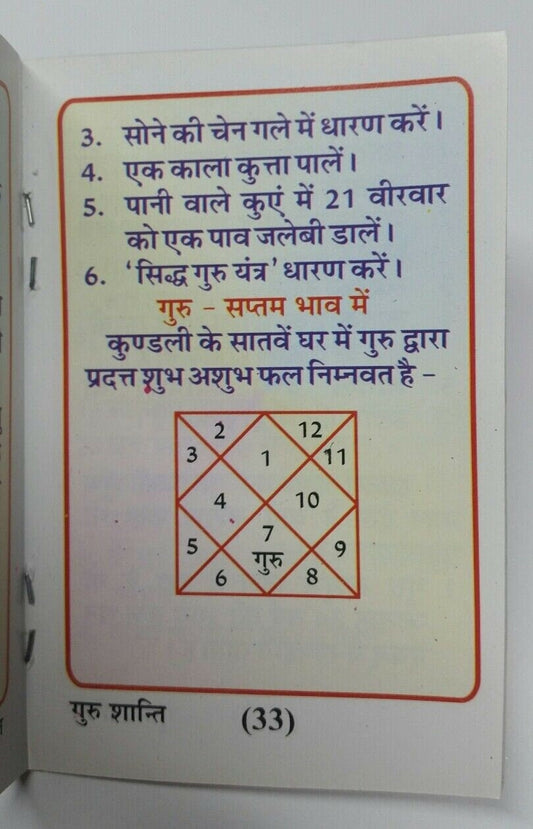 3. सोने की चेन गले में धारण करें।
4. एक काला कुत्ता पालें।
5. पानी वाले कुएं में 21 वीरवार
को एक पाव जलेबी डालें।
6. 'सिद्ध गुरु यंत्र' धारण करें।
गुरु - सप्तम भाव में
कुण्डली के सातवें घर में गुरु द्वारा
प्रदत्त शुभ अशुभ फल निम्नवत है -
2 12
3 1 11
4 10
5 7 9
गुरु
6 8
गुरु शान्ति (33)